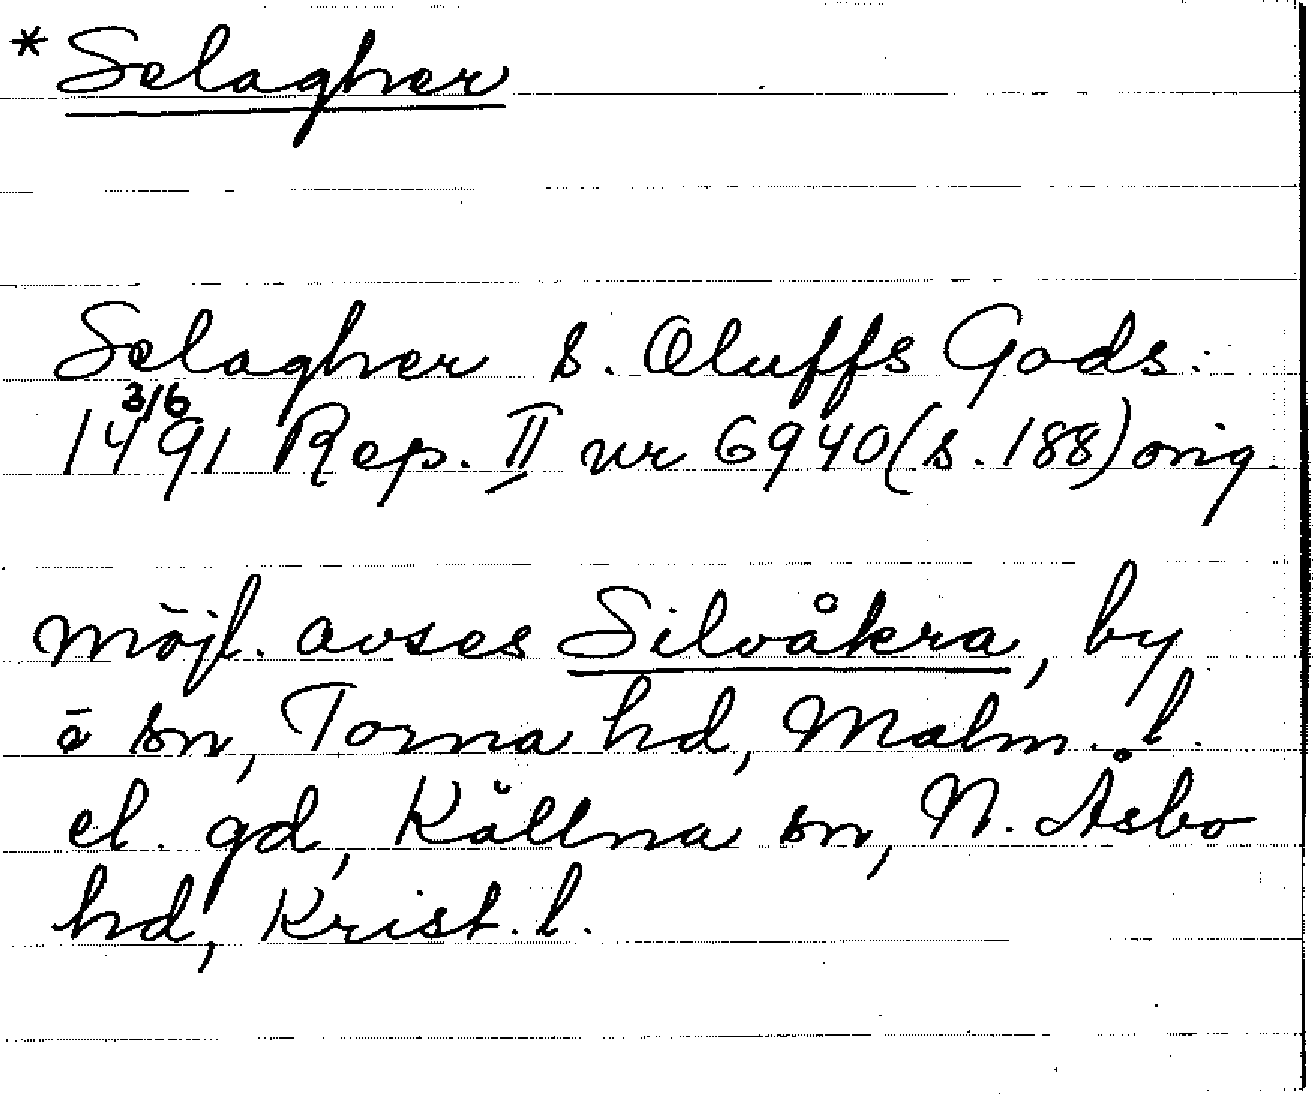 * Selagher
Selagher s. Oluffs Gods.
3/6
1491 Rep. II nr 6940 (s. 188) orig.
möjl. avses Silvåkra, by
o sn, Torna hd, Malm. l.
el. gd, Källna sn, N. Åsbo
hd, Krist. l.